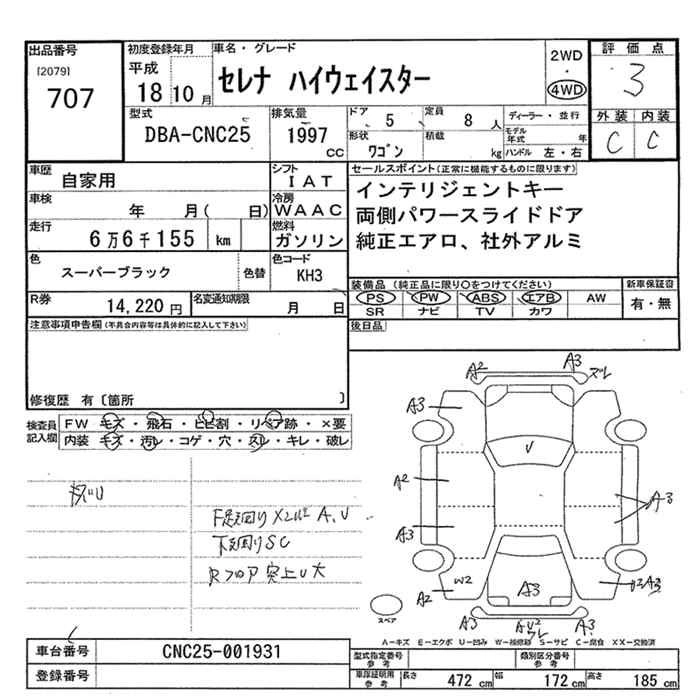 出品番号
[2079]
707
初度登録年月
平成
18 10 月
車名・グレード
セレナ ハイウェイスター
2WD
・
4WD
評価点
3
外装 内装
C C
型式
DBA-CNC25
排気量
1997
CC
ドア
5
定員
8 人
形状
ワゴン
積載
kg
ディーラー・並行
モデル年式 年
ハンドル 左・右
車歴
自家用
シフト
IAT
車検
年 月( 日)
冷房
WAAC
走行
6万6千155 km
燃料
ガソリン
色
スーパーブラック
色替
色コード
KH3
R券
14,220 円
名変通知期限
月 日
セールスポイント(正常に機能するものに限ります)
インテリジェントキー
両側パワースライドドア
純正エアロ、社外アルミ
装備品 (純正品に限り○をつけてください)
新車保証書
PS PW ABS エアB AW
有・無
SR ナビ TV カワ
後日品
注意事項申告欄(不具合内容等は具体的に記入して下さい)
修復歴 有〔箇所 〕
検査員
記入欄
FW キズ・飛石・ヒビ割・リペア跡・×要
内装 キズ・汚レ・コゲ・穴・スレ・キレ・破レ
下廻りSC
Rフロア突上U大
A2
A3
ズレ
A3
U
A2
A3
A3
W2
A2
A3
A3
A3
スペア
A-キズ E-エクボ U-凹み W-補修跡 S-サビ C-腐食 XX-交換済
車台番号
CNC25-001931
登録番号
型式指定番号
参考
類別区分番号
参考
車庫証明用
参考
長さ 472 cm
幅 172 cm
高さ 185 cm